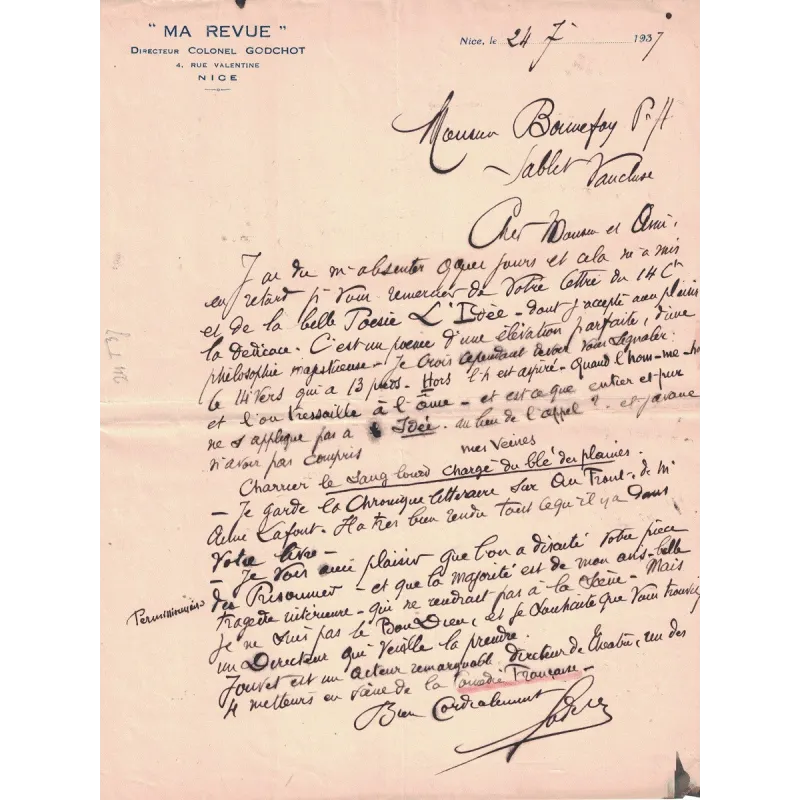 " MA REVUE "
DIRECTEUR COLONEL GODCHOT
4, RUE VALENTINE
NICE
Nice, le 24 J 1937
Monsieur Bonnefoy Pr
Sablet Vaucluse
Cher Monsieur et Ami,
J'ai du m'absenter qques jours et cela m'a mis
en retard pr vous remercier de votre lettre du 14 Ct
et de la belle Poesie L'Idée - dont j'accepte avec plaisir
la dédicace. C'est un poème d'une élévation parfaite, d'une
philosophie majestueuse. - Je crois cependant devoir vous signaler
le 14 vers qui a 13 pieds. Hors l'h est aspiré. Quand l'hom-me
et l'on tressaille à l'âme - et est ce que entier et pur
ne s'applique pas a Idée. au lieu de l'appel ? et j'avoue
n'avoir pas compris mes veines
Charrier le sang lourd chargé du blé des plaines.
- Je garde la Chronique littéraire sur Au Front, de Mr
Aimé Lafont. Il a très bien rendu tout ce qu'il y a dans
votre livre -
- Je vois avec plaisir que l'on a discuté votre pièce
du Prisonnier - et que la majorité est de mon avis - belle
tragédie intérieure - qui ne rendrait pas à la scène. Mais
Permissionnaire
je ne suis pas le Bon Dieu, et je souhaite que vous trouviez
un Directeur qui veuille la prendre.
Jouvet est un acteur remarquable directeur de Théatre, un des
4 metteurs en scène de la Comédie Française. -
Bien Cordialement
Godchot
24 J 37